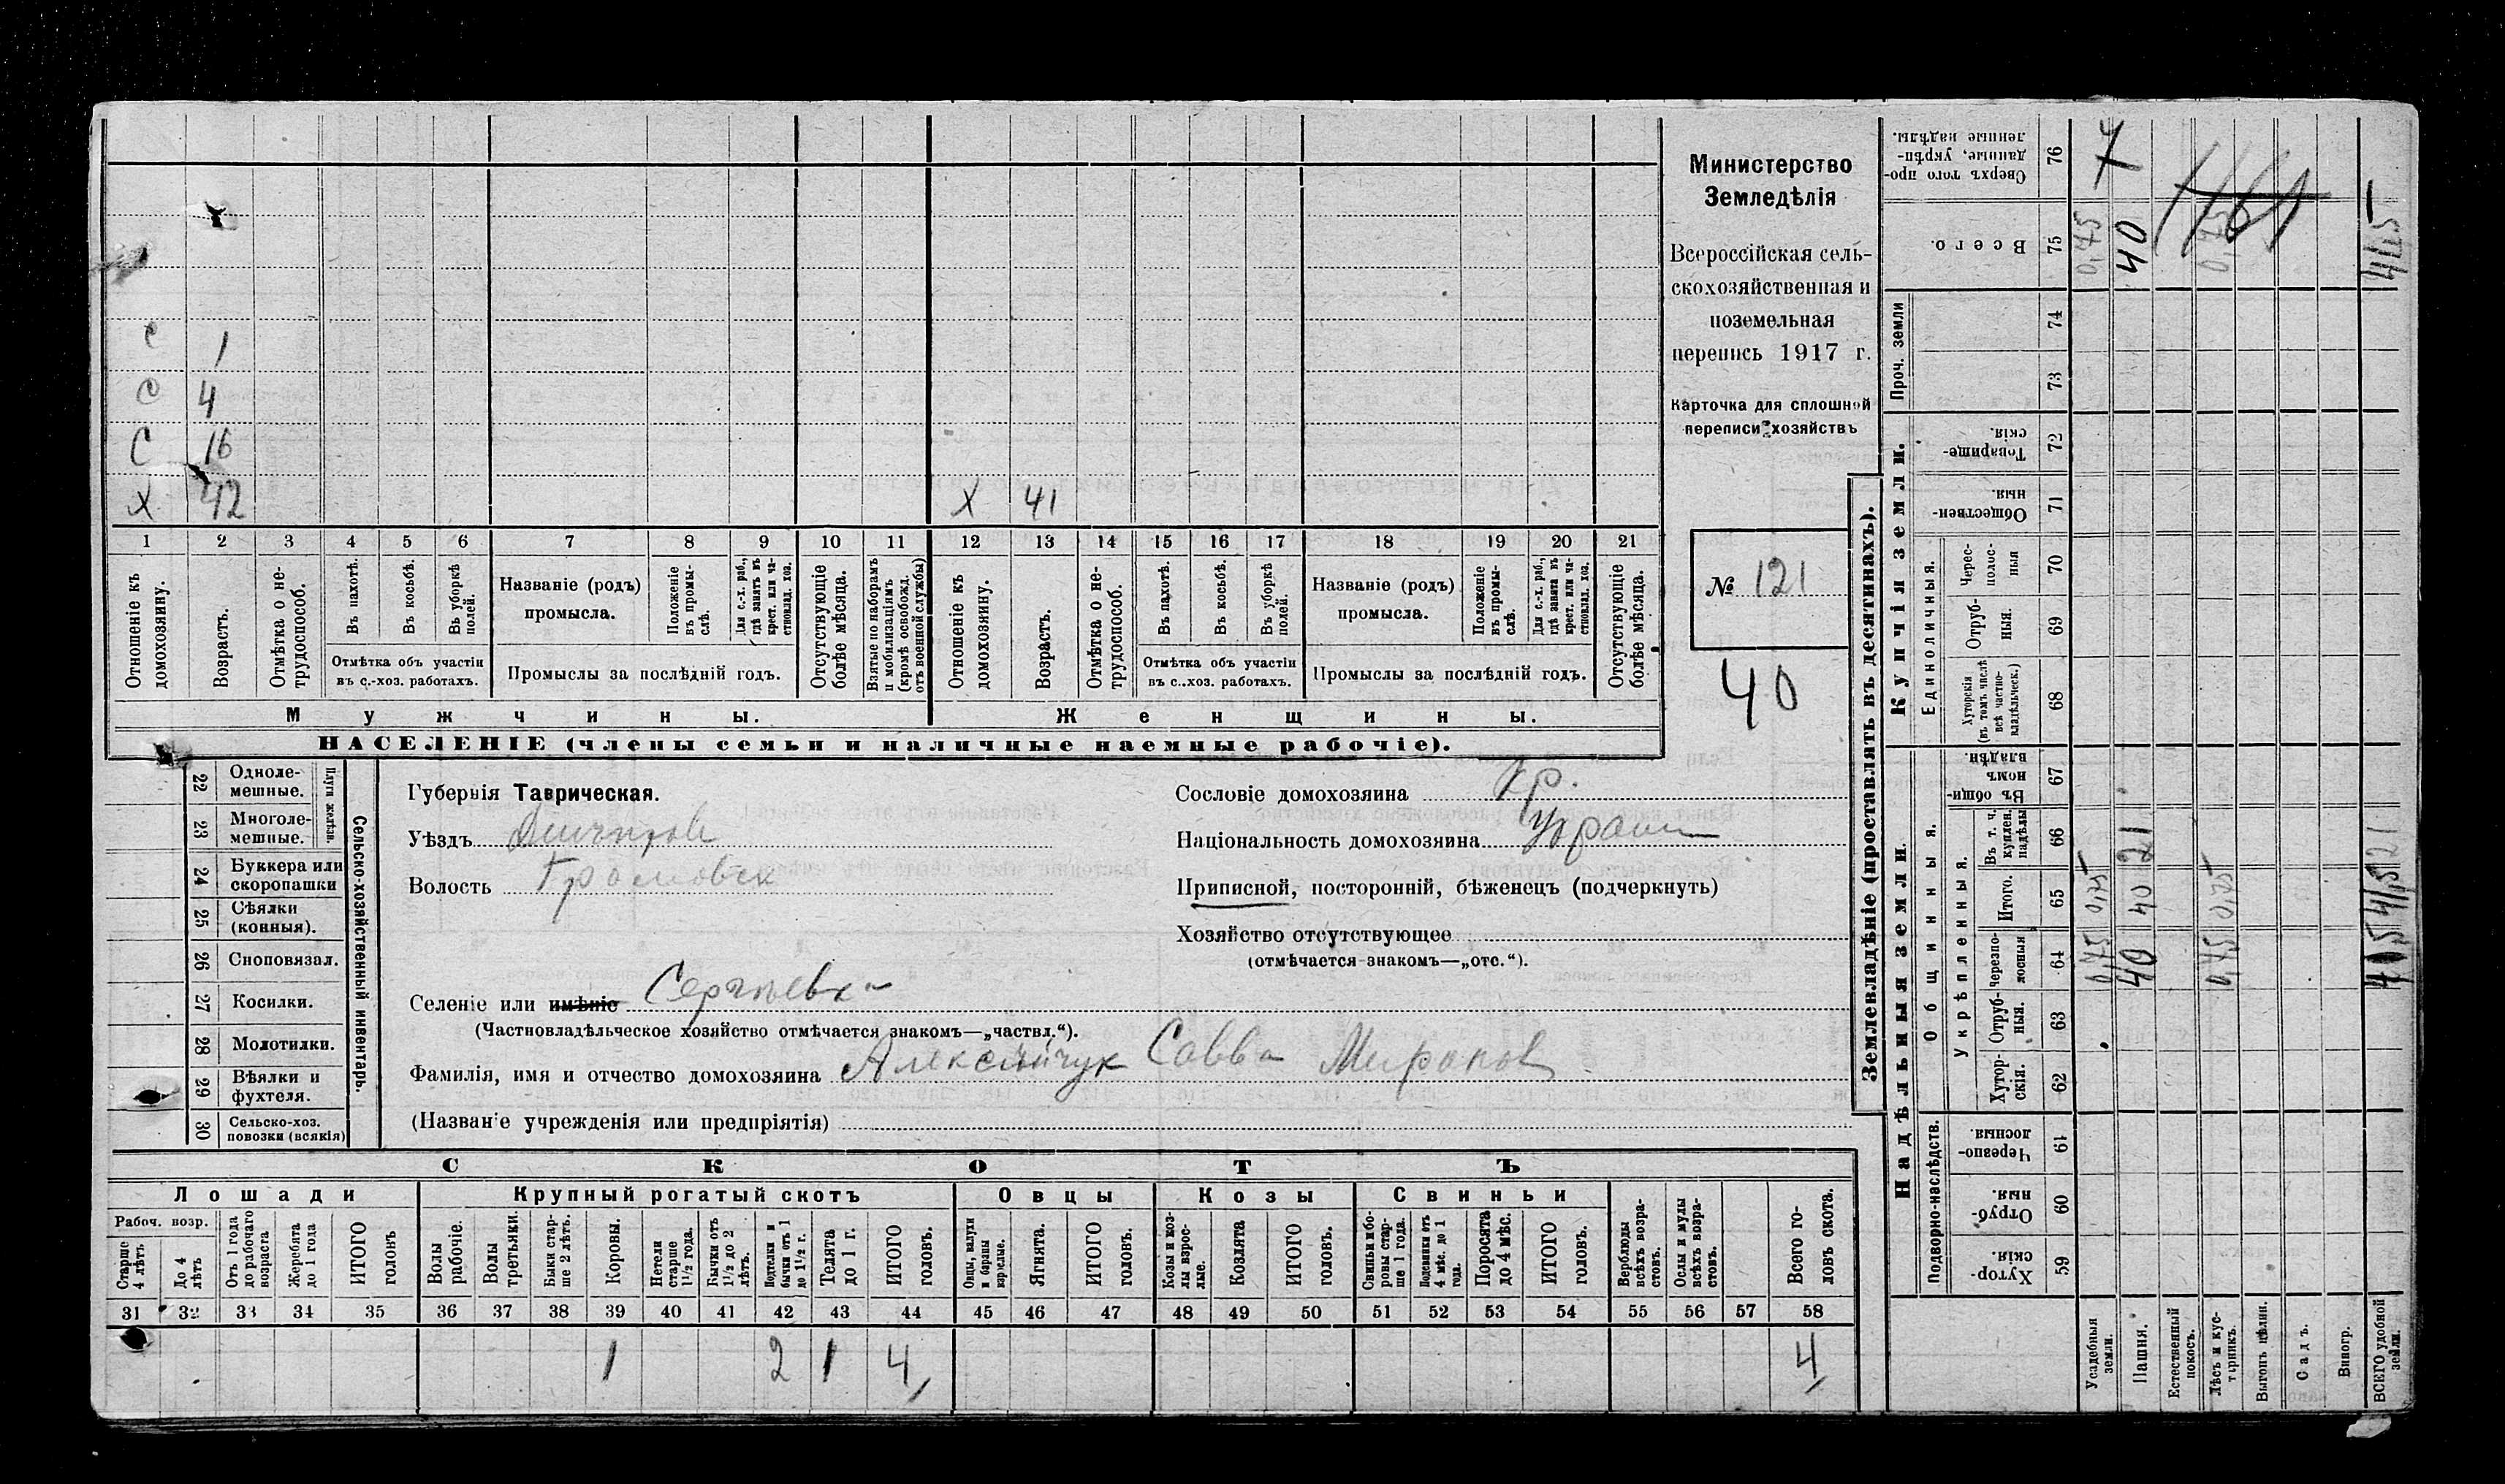 С 1
С 4
С 16
Х 42 Х 41
1 2 3 4 5 6 7 8 9 10 11 12 13 14 15 16 17 18 19 20 21
Отношеніе къ домохозяину.
Возрастъ.
Отмѣтка о не-трудоспособ.
Въ пахотѣ.
Въ косьбѣ.
Въ уборкѣ полей.
Отмѣтка объ участіи
въ с.-хоз. работахъ.
Названіе (родъ)
промысла.
Положеніе въ промы-слѣ.
Для с.-х. раб., гдѣ занятъ въ крест. или ча-стновлад. хоз.
Промыслы за послѣдній годъ.
Отсутствующіе болѣе мѣсяца.
Взятые по наборамъ и мобилизаціямъ (кромѣ освобожд. отъ военной службы)
Отношеніе къ домохозяину.
Возрастъ.
Отмѣтка о не-трудоспособ.
Въ пахотѣ.
Въ косьбѣ.
Въ уборкѣ полей.
Отмѣтка объ участіи
въ с.-хоз. работахъ.
Названіе (родъ)
промысла.
Положеніе въ промы-слѣ.
Для с.-х. раб., гдѣ занятъ въ крест. или ча-стновлад. хоз.
Промыслы за послѣдній годъ.
Отсутствующіе болѣе мѣсяца.
Мужчины. Женщины.
НАСЕЛЕНІЕ (члены семьи и наличные наемные рабочіе).
Министерство
Земледѣлія
Всероссійская сель-
скохозяйственная и
поземельная
перепись 1917 г.
Карточка для сплошной
переписи хозяйствъ
№ 121
40
22 Одноле-мешные.
23 Многоле-мешные.
Плуги желѣзн.
24 Буккера или скоропашки
25 Сѣялки (конныя).
26 Сноповязал.
27 Косилки.
28 Молотилки.
29 Вѣялки и фухтеля.
30 Сельско-хоз. повозки (всякія)
Сельско-хозяйственный инвентарь.
Губернія Таврическая.
Уѣздъ
Волость Громовск
Селеніе или имѣніе Сергѣевка
(Частновладѣльческое хозяйство отмѣчается знакомъ—„частвл.“).
Фамилія, имя и отчество домохозяина Алексѣйчук Савва Миронов
(Названіе учрежденія или предпріятія)
Сословіе домохозяина Кр.
Національность домохозяина Украин
Приписной, посторонній, бѣженецъ (подчеркнуть)
Хозяйство отсутствующее
(отмѣчается знакомъ—„отс.“).
СКОТЪ
Лошади Крупный рогатый скотъ Овцы Козы Свиньи
Рабоч. возр.
Старше 4 лѣтъ
До 4 лѣтъ
Отъ 1 года до рабочаго возраста
Жеребята до 1 года
ИТОГО головъ
Волы рабочіе.
Волы третьяки.
Быки стар-ше 2 лѣтъ.
Коровы.
Нетели старше 1½ года.
Бычки отъ 1½ до 2 лѣтъ.
Подтелки и бычки отъ 1 до 1½ г.
Телята до 1 г.
ИТОГО головъ.
Овцы, валухи и бараны взрослые.
Ягнята.
ИТОГО головъ.
Козы и коз-лы взрос-лые.
Козлята
ИТОГО головъ.
Свиньи и бо-ровы стар-ше 1 года.
Подсвинки отъ 4 мѣс. до 1 года.
Поросята до 4 мѣс.
ИТОГО головъ.
Верблюды всѣхъ возра-стовъ.
Ослы и мулы всѣхъ возра-стовъ.
Всего го-ловъ скота.
31 32 33 34 35 36 37 38 39 40 41 42 43 44 45 46 47 48 49 50 51 52 53 54 55 56 57 58
1 2 1 4 4
Землевладѣніе (проставлять въ десятинахъ).
Надѣльныя земли. Купчія земли. Проч. земли
Подворно-наслѣдств. Общинныя. Единоличныя.
Укрѣпленныя.
59 Хутор-скія.
60 Отруб-ныя.
61 Черезпо-лосныя
62 Хутор-скія.
63 Отруб-ныя.
64 Черезпо-лосныя
65 Итого.
66 Въ т. ч. куплен. надѣлы
67 Въ общин-номъ владѣн.
68 Хуторскія (въ томъ числѣ всѣ частно-владѣльческ.)
69 Отруб-ныя.
70 Черес-полос-ныя
71 Обществен-ныя.
72 Товарище-скія.
73
74
75 Всего.
76 Сверхъ того про-данные, укрѣп-ленные надѣлы.
Усадебныя земли. 0,75 0,75 0,75 7
Пашня. 40 40 21 40
Естественный покосъ.
Лѣсъ и кус-тарникъ. 0,75 0,75 0,75
Выгонъ цѣлин.
Садъ.
Виногр.
ВСЕГО удобной земли.